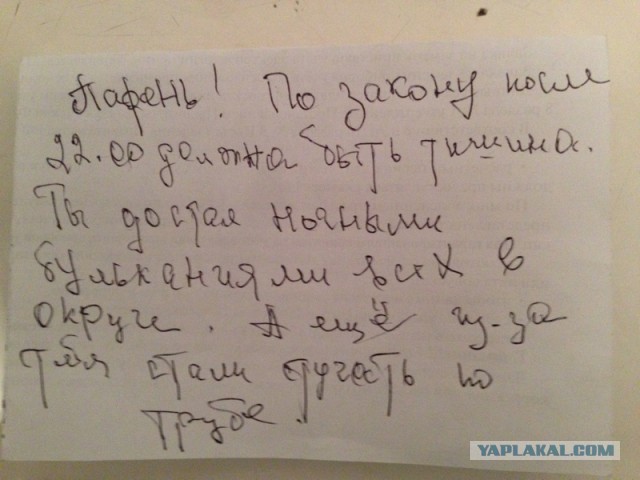 Парень! По закону после
22.00 должна быть тишина.
Ты достал ночными
бульканиями всех в
округе. А ещё из-за
тебя стали стучать по
трубе.
YAPLAKAL.COM